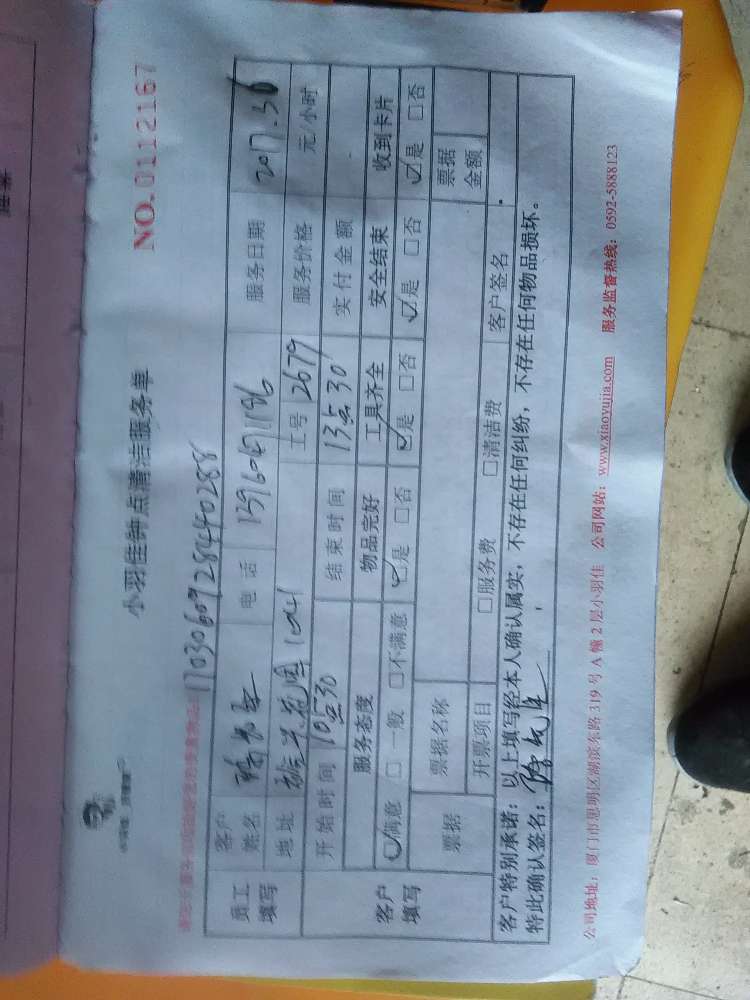 NO.0112167
小羽佳钟点清洁服务单
17030609284490288
员工填写 客户姓名 电话 13960471196 服务日期 2017.3.6
地址 1041 工号 2679 服务价格 元/小时
开始时间 10点30 结束时间 13点30 实付金额
客户填写 服务态度 物品完好 工具齐全 安全结束 收到卡片
☑满意 □一般 □不满意 ☑是 □否 ☑是 □否 ☑是 □否 ☑是 □否
票据 票据名称 票据金额
开票项目 □服务费 □清洁费 客户签名
客户特别承诺：以上填写经本人确认属实，不存在任何纠纷，不存在任何物品损坏。
特此确认签名：
公司地址：厦门市思明区湖滨东路 319 号 A 幢 2 层小羽佳 公司网站：www.xiaoyujia.com 服务监督热线：0592-5888123